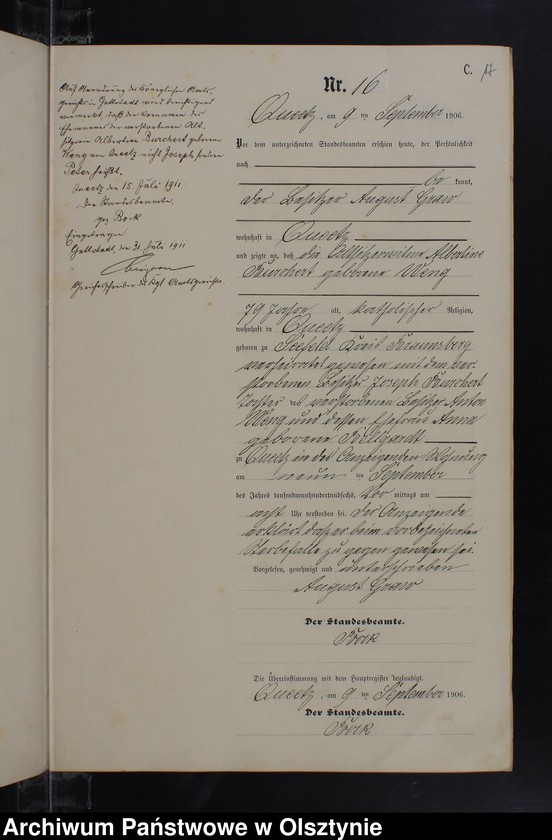 C. 17
Nr. 16
Queetz, am 9ten September 1906.
Vor dem unterzeichneten Standesbeamten erschien heute, der Persönlichkeit
nach
be kannt,
der Besitzer August Graw
wohnhaft in Queetz
und zeigte an, daß die Altsitzerwitwe Albertine
Burchert geborene Weng
79 Jahre alt, katholischer Religion,
wohnhaft in Queetz
geboren zu Seefeld Kreis Braunsberg
verheiratet gewesen mit dem ver-
storbenen Besitzer Joseph Burchert
Tochter des verstorbenen Besitzer Anton
Weng und dessen Ehefrau Anna
geborene Hellgardt
zu Queetz in des Anzeigenden Wohnung
am neun ten September
des Jahres tausendneunhundertundsechs, Vor mittags um
acht Uhr verstorben sei. Der Anzeigende
erklärt daß er beim vorbezeichneten
Sterbefalle zu gegen gewesen sei.
Vorgelesen, genehmigt und unterschrieben
August Graw
Der Standesbeamte.
Bock
Die Übereinstimmung mit dem Hauptregister beglaubigt.
Queetz, am 9ten September 1906.
Der Standesbeamte.
Bock
Auf Anordnung des Königlichen Amts-
gerichts in Guttstadt wird berichtigend
vermerkt, daß der Vorname des
Ehemannes der verstorbenen Alt-
sitzerin Albertine Burchert geborene
Weng aus Queetz nicht Joseph sondern
Peter heißt.
Queetz den 15. Juli 1911
Der Standesbeamte.
gez. Bock
Eingetragen
Guttstadt, den 31 Juli 1911
Gerichtsschreiber des Kgl. Amtsgerichts
Archiwum Państwowe w Olsztynie